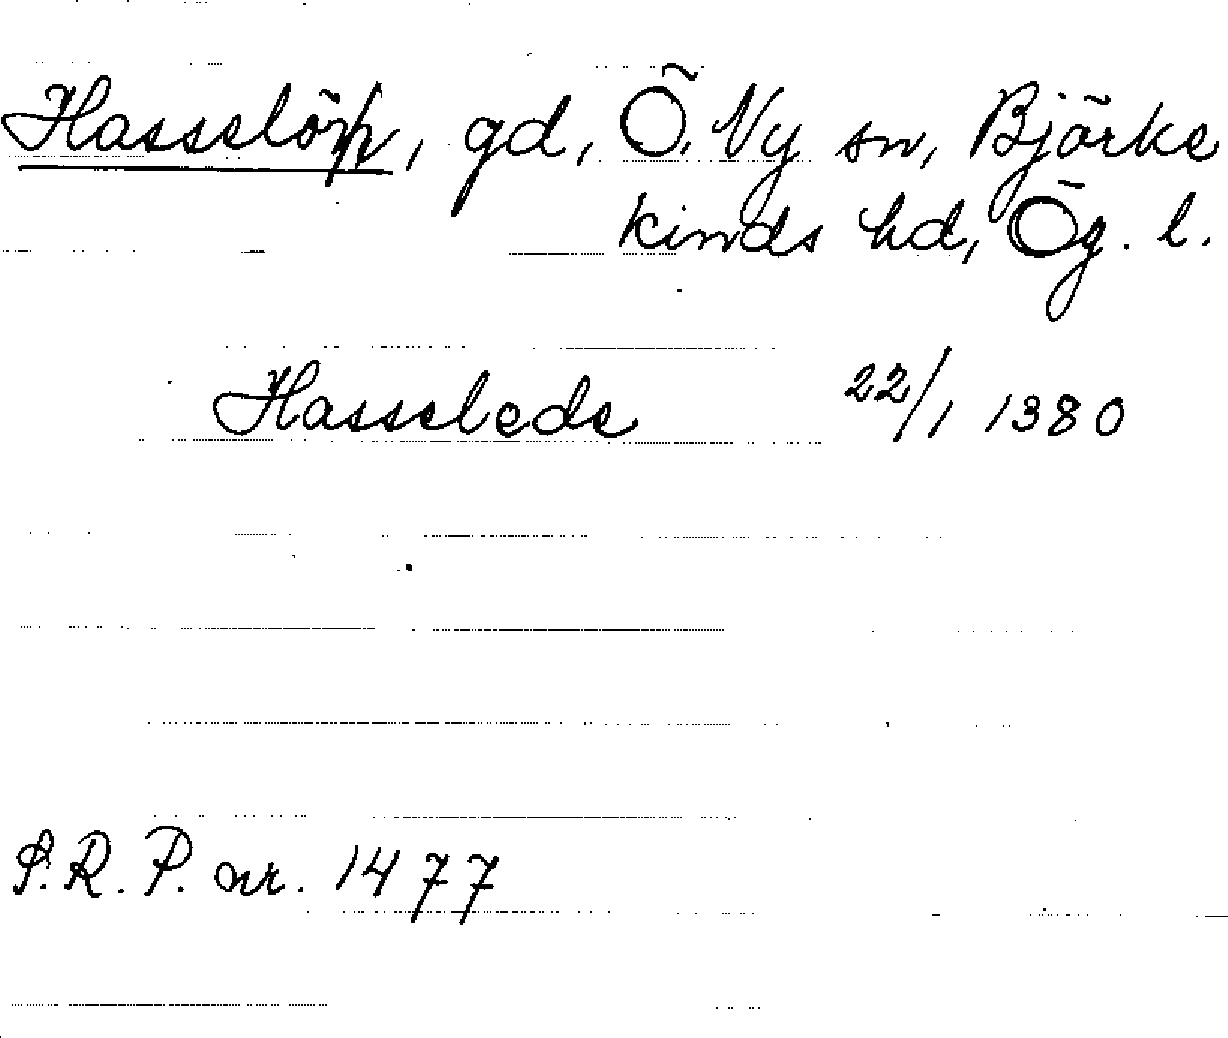 Hasselöpp, gd, Ö. Ny sn, Björke
kinds hd, Ög. l.
Hasselede 22/1 1380
S.R.P. nr. 1477